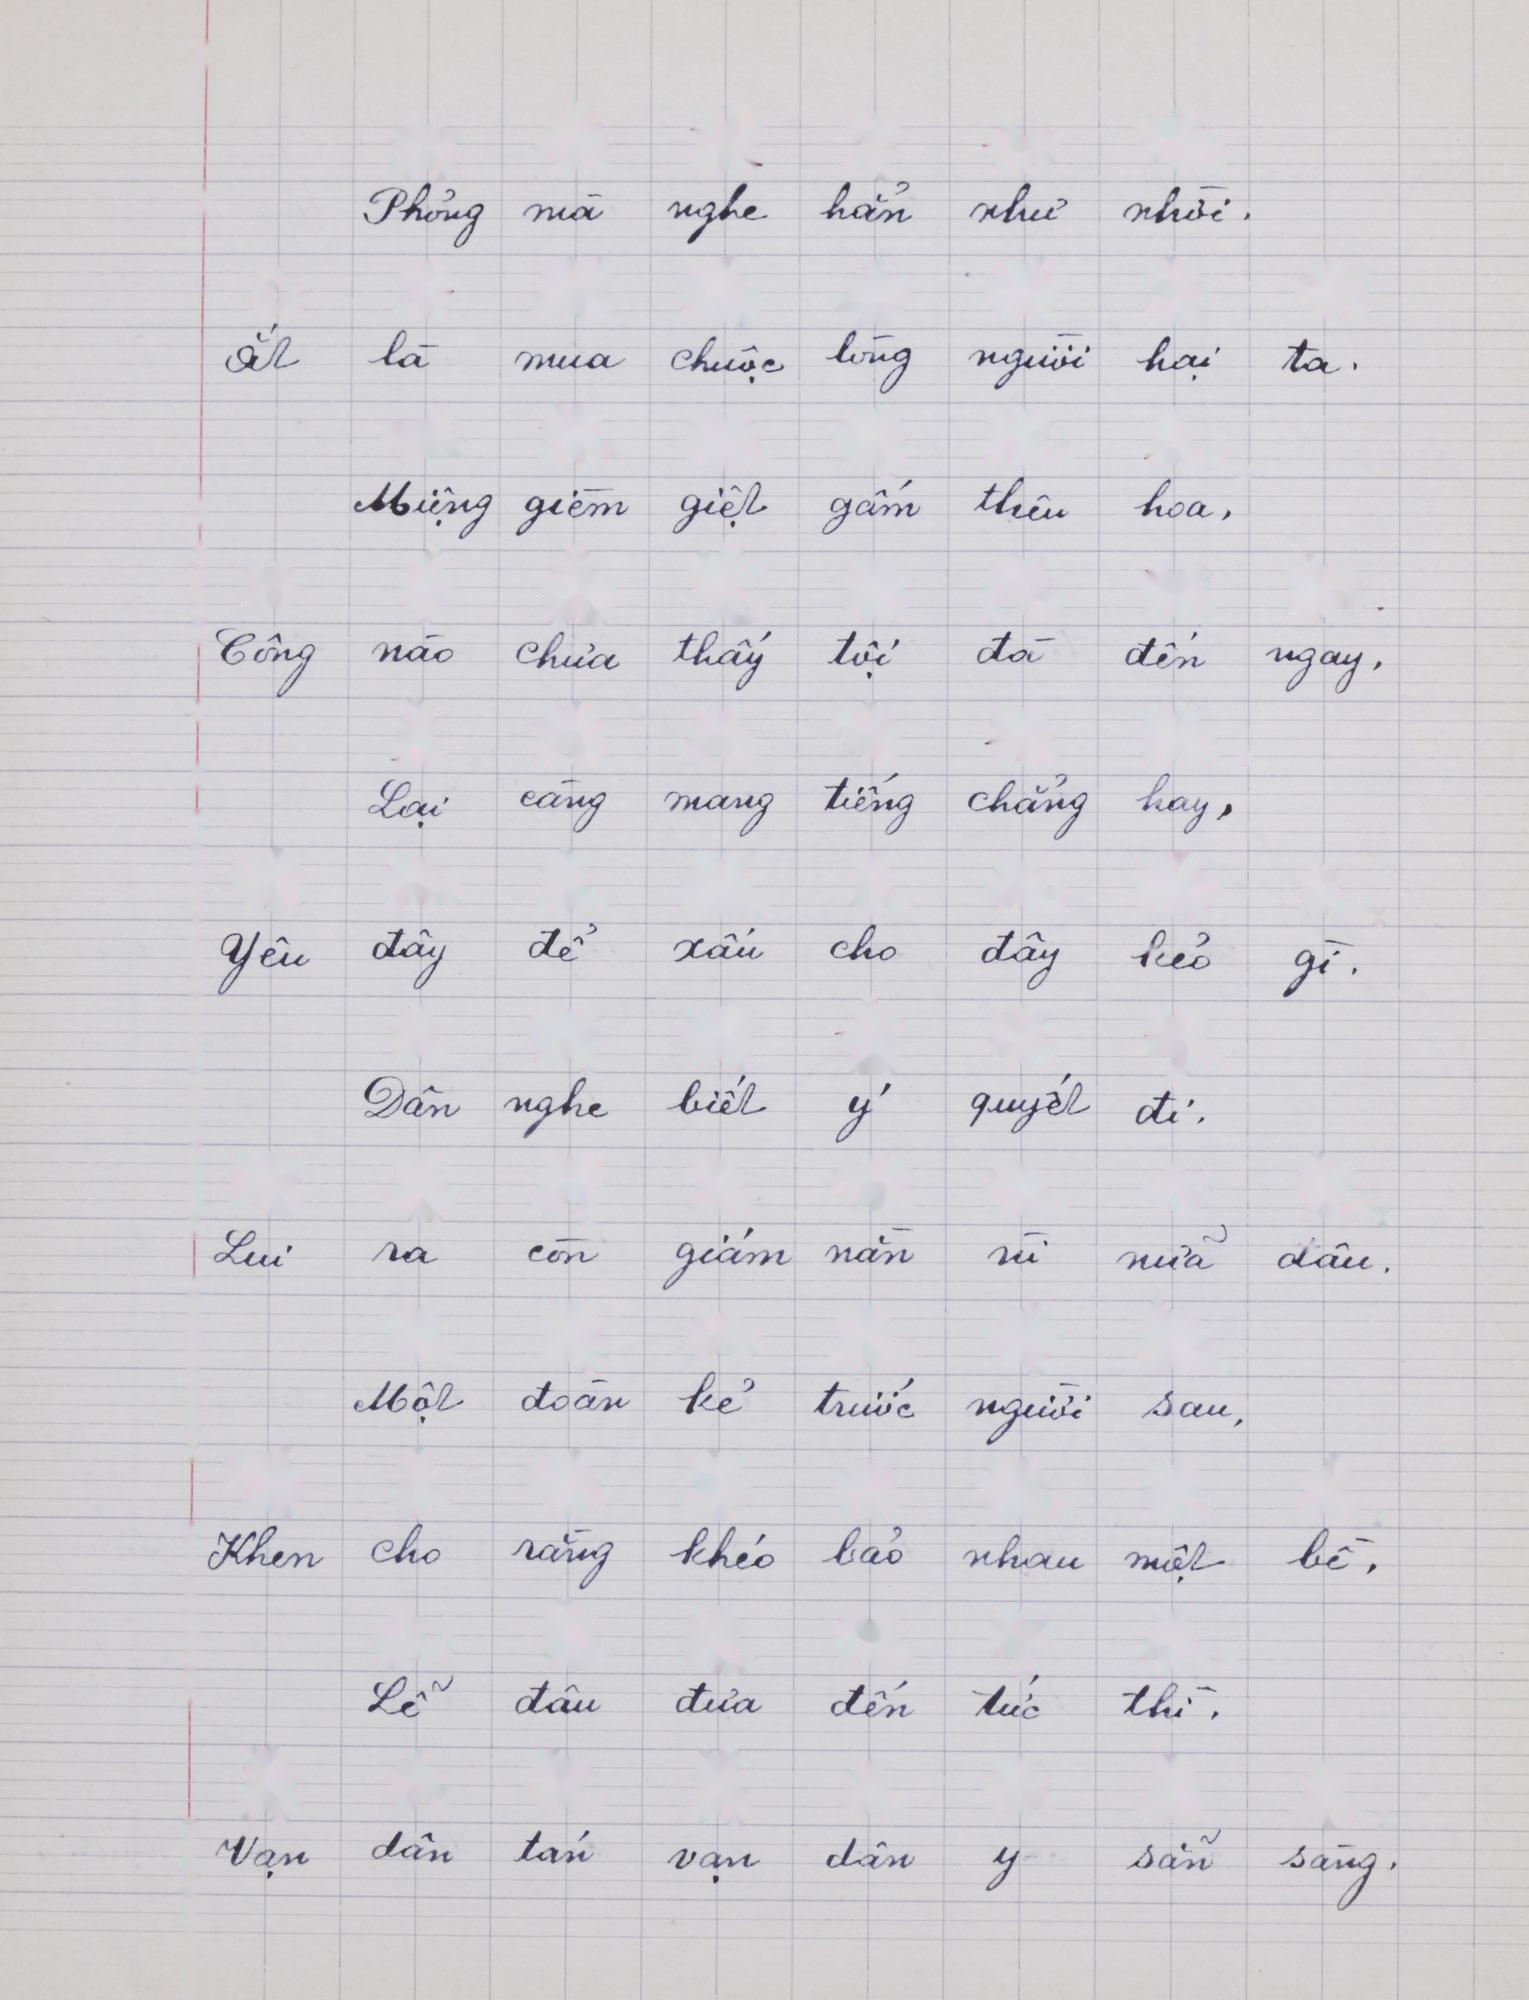 Phỏng mà nghe hẳn như nhời.
Ắt là mua chuộc lòng người hại ta.
Miệng gièm giệt gấm thêu hoa,
Công nào chưa thấy tội đà đến ngay,
Lại càng mang tiếng chẳng hay,
Yêu đây để xấu cho đây kẻo gì.
Dân nghe biết ý quyết đi.
Lui ra còn giám nằn nì nữa dâu.
Một đoàn kẻ trước người sau,
Khen cho rằng khéo bảo nhau một bề,
Lễ đâu đưa đến tức thì.
Vạn dân tán vạn dân y sẵn sàng.